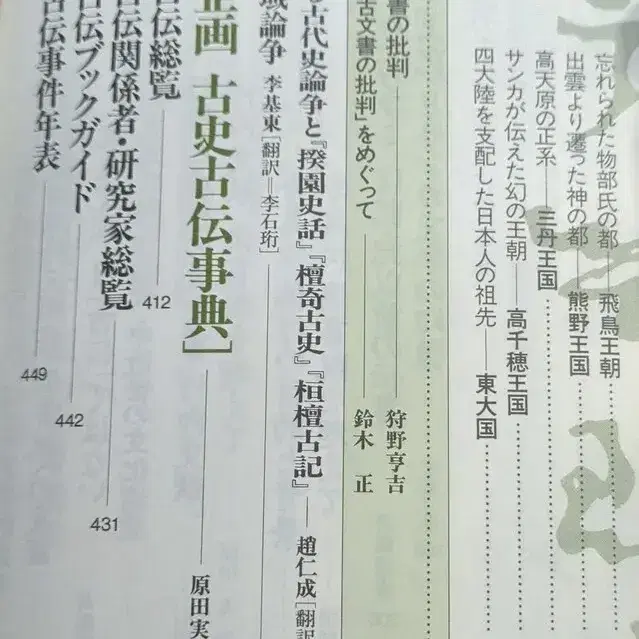 忘れられた物部氏の都――飛鳥王朝
出雲より遷った神の都――熊野王国
高天原の正系――三丹王国
サンカが伝えた幻の王朝――高千穂王国
四大陸を支配した日本人の祖先――東大国
書の批判――狩野亨吉
古文書の批判」をめぐって――鈴木 正
古代史論争と『揆園史話』『檀奇古史』『桓檀古記』――趙仁成[翻訳
域論争 李基東[翻訳=李石珩]
企画 古史古伝事典]――原田実
古伝総覧 412
古伝関係者・研究家総覧 431
古伝ブックガイド 442
古伝事件年表 449